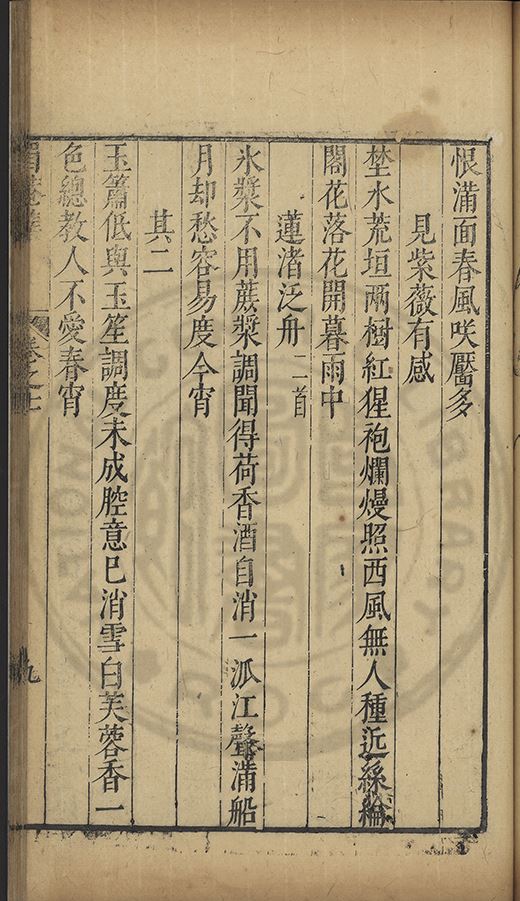 恨滿面春風咲靨多
見紫薇有感
埜水荒垣兩樹紅猩袍爛熳照西風無人種近絲綸
閣花落花開暮雨中
蓮渚泛舟二首
氷漿不用蔗漿調聞得荷香酒自消一派江聲滿船
月却愁容易度今宵
其二
玉簫低與玉笙調度未成腔意已消雪白芙蓉香一
色總教人不愛春宵
卷之上
九